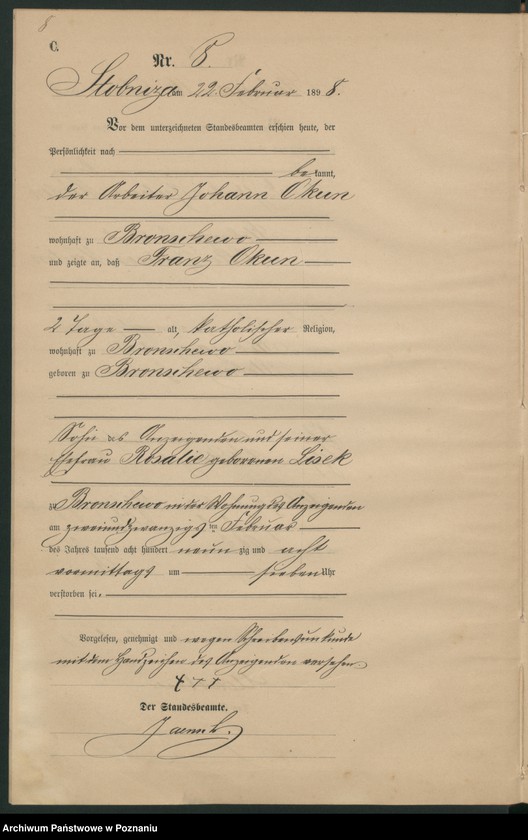 8
C.
Nr. 8.
Stobniza am 22. Februar 1898.
Vor dem unterzeichneten Standesbeamten erschien heute, der
Persönlichkeit nach
bekannt,
der Arbeiter Johann Okun
wohnhaft zu Bronschewo
und zeigte an, daß Franz Okun
2 Tage alt, katholischer Religion,
wohnhaft zu Bronschewo
geboren zu Bronschewo
Sohn des Anzeigenden und seiner
Ehefrau Rosalie geborenen Lisek
zu Bronschewo in der Wohnung des Anzeigenden
am zweiundzwanzigsten Februar
des Jahres tausend acht hundert neunzig und acht
vormittags um sieben Uhr
verstorben sei.
Vorgelesen, genehmigt und wegen Schreibensunkunde
mit dem Handzeichen des Anzeigenden versehen
+++
Der Standesbeamte.
Archiwum Państwowe w Poznaniu